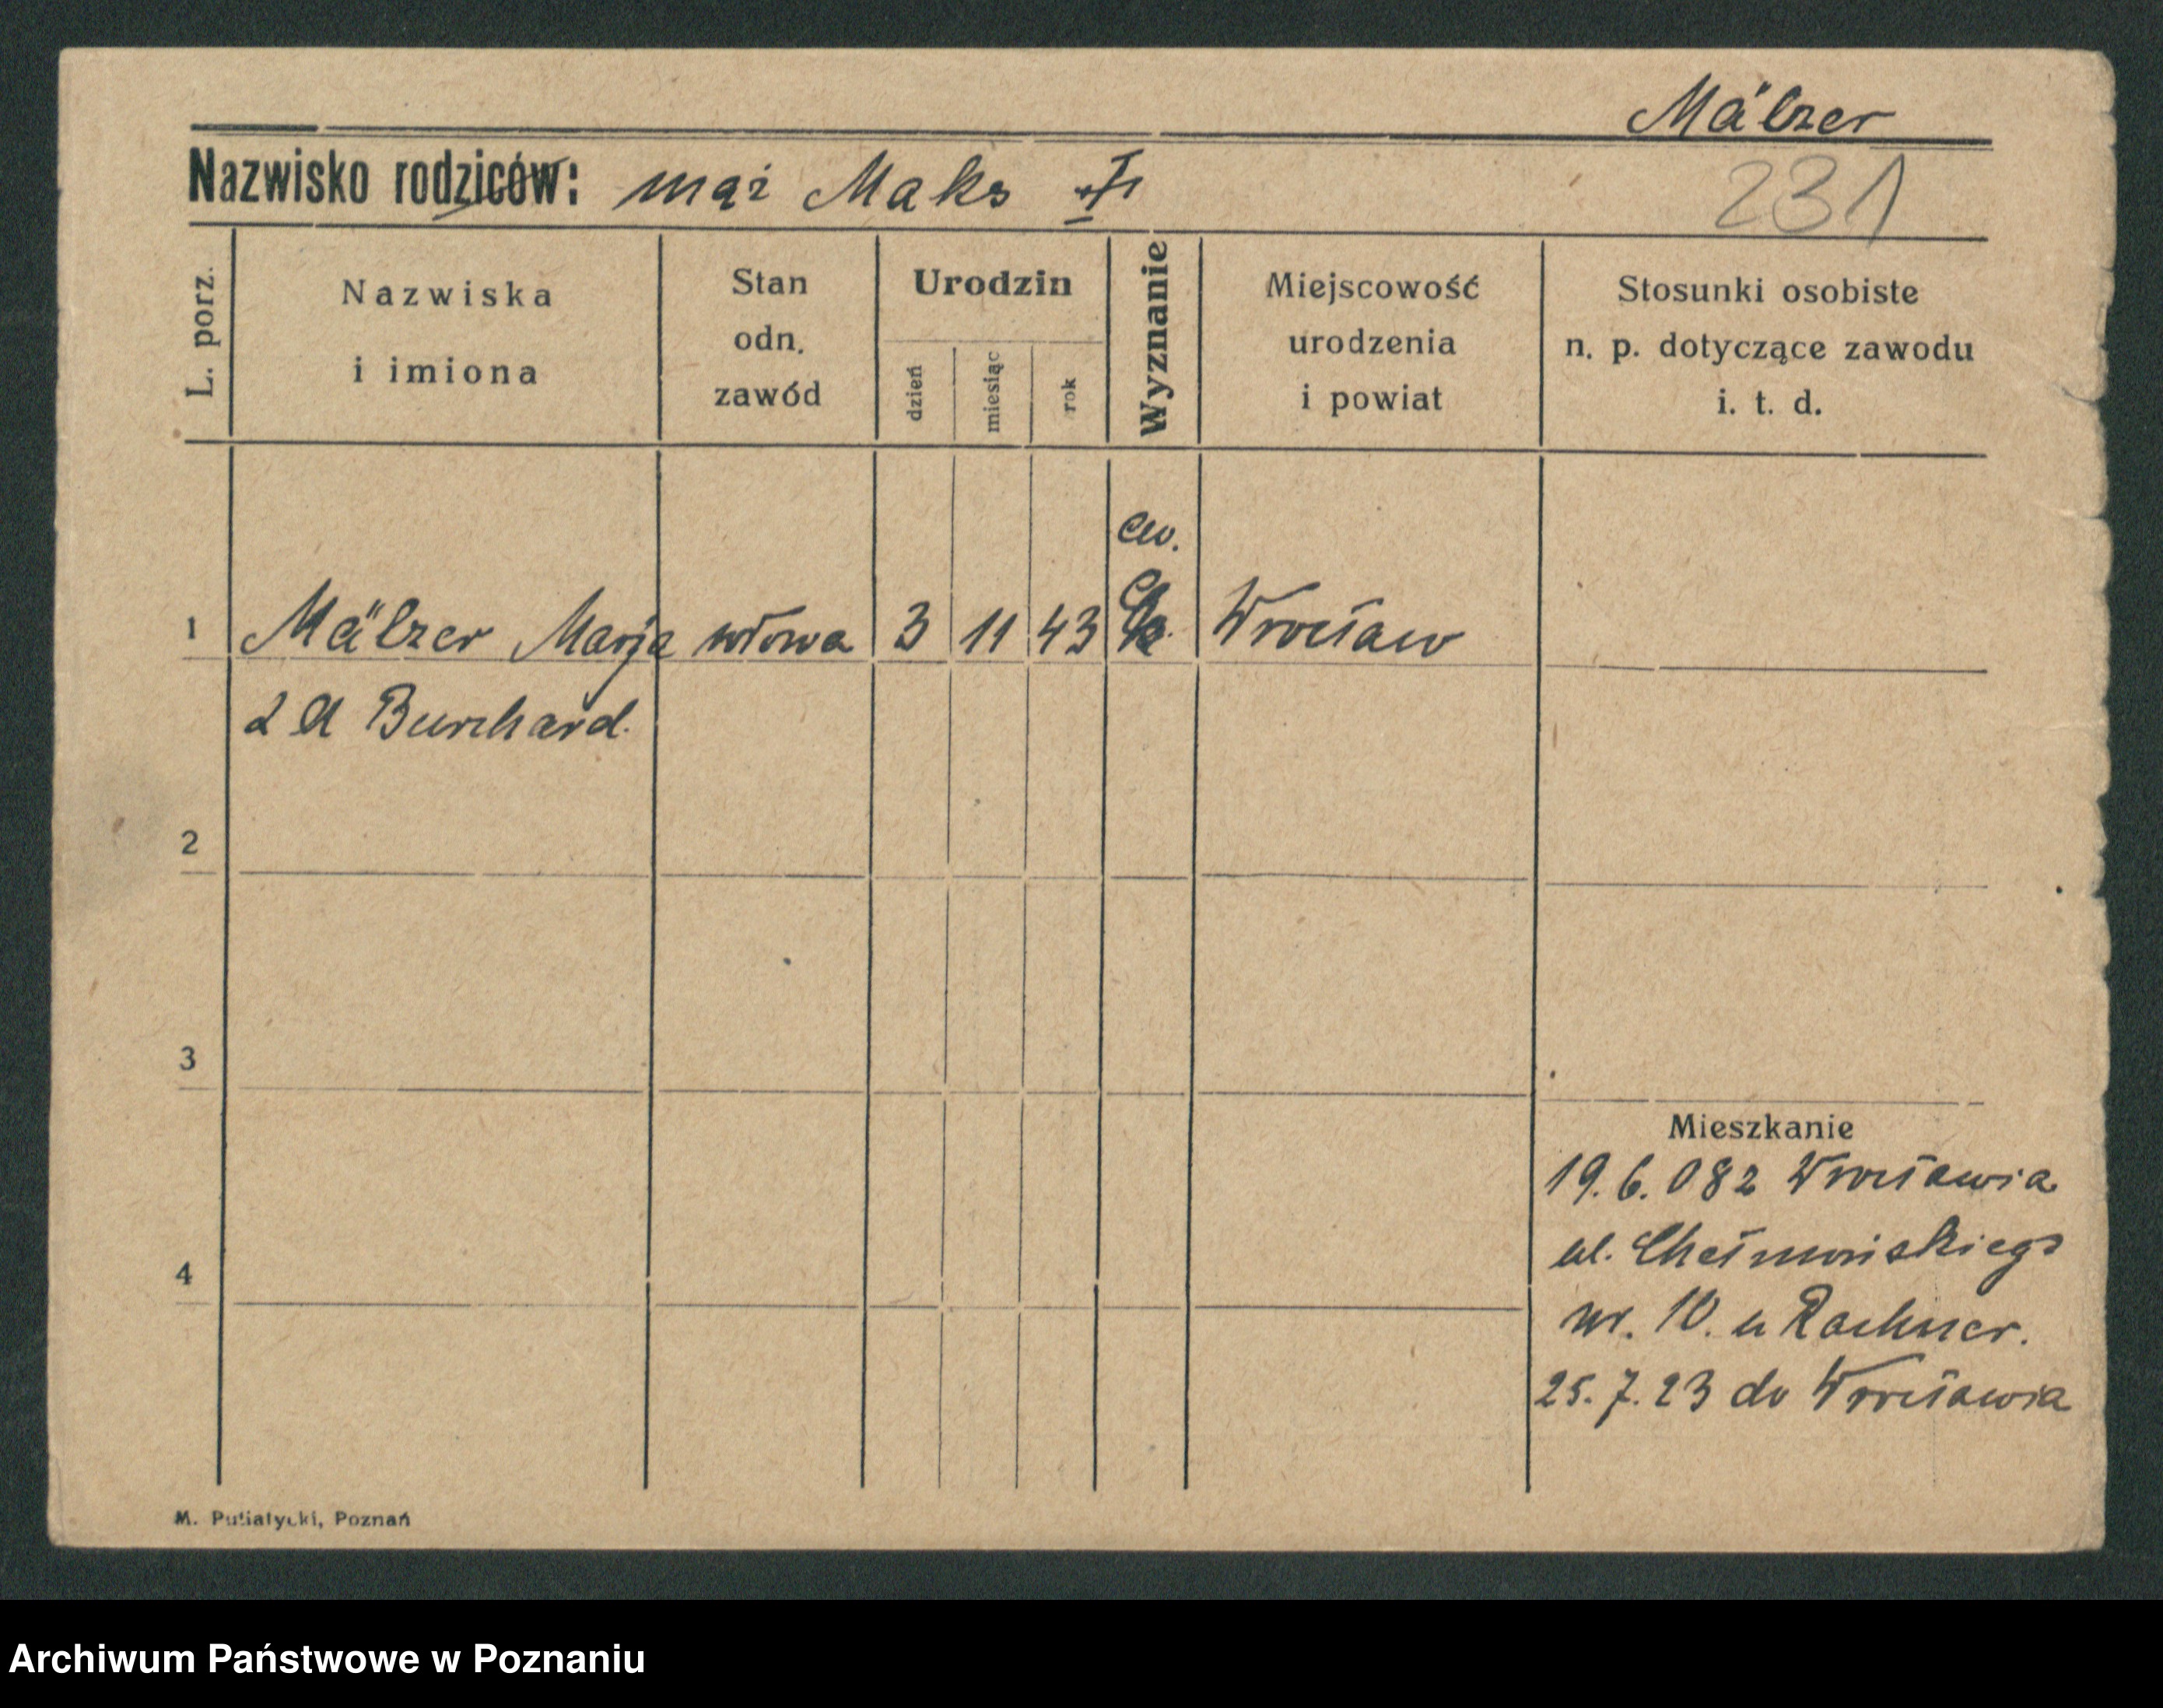 Mälzer
Nazwisko rodziców: mąż Maks
231
L. porz.
Nazwiska
i imiona
Stan
odn.
zawód
Urodzin
dzień
miesiąc
rok
Wyznanie
Miejscowość
urodzenia
i powiat
Stosunki osobiste
n. p. dotyczące zawodu
i. t. d.
ew.
1 Mälzer Marja wdowa 3 11 43 Wrocław
Burchard.
2
3
4
Mieszkanie
19. 6. z Wrocławia
ul. Chełmońskiego
nr. 10. u Rachner.
25. 7. 23 do Wrocławia
M. Putiatycki, Poznań
Archiwum Państwowe w Poznaniu